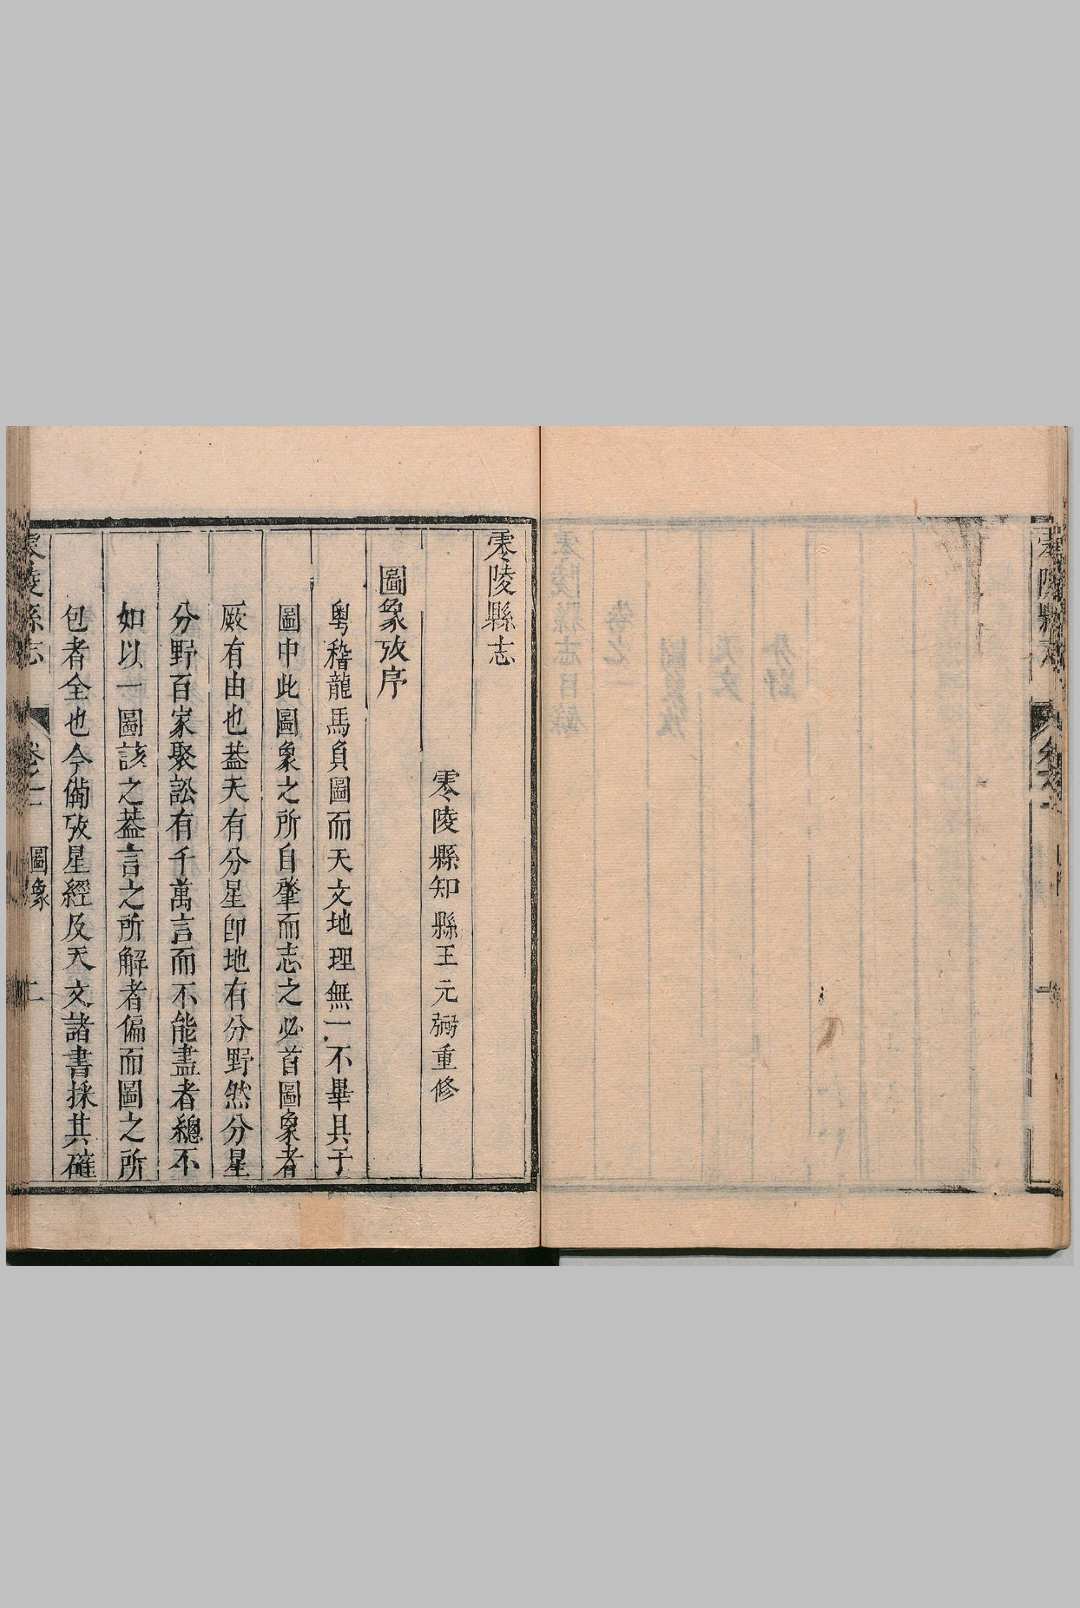 零陵縣志
零陵縣知縣王元弼重修
圖象攷序
粤稽龍馬負圖而天文地理無一不畢具于
圖中此圖象之所自肇而志之必首圖象者
厥有由也葢天有分星即地有分野然分星
分野百家聚訟有千萬言而不能盡者總不
如以一圖該之葢言之所解者偏而圖之所
包者全也今備攷星經及天文諸書採其確
零陵縣志 卷之一 圖象 二